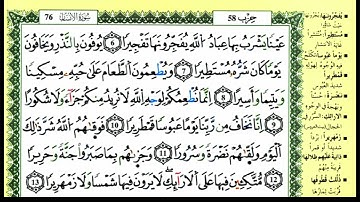 76 سُورَةُ الإِنسَان حِزْب 58
عَيْنًا يَشْرَبُ بِهَا عِبَادُ اللَّهِ يُفَجِّرُونَهَا تَفْجِيرًا 6 يُوفُونَ بِالنَّذْرِ وَيَخَافُونَ
يَوْمًا كَانَ شَرُّهُ مُسْتَطِيرًا 7 وَيُطْعِمُونَ الطَّعَامَ عَلَى حُبِّهِ مِسْكِينًا
وَيَتِيمًا وَأَسِيرًا 8 إِنَّمَا نُطْعِمُكُمْ لِوَجْهِ اللَّهِ لَا نُرِيدُ مِنكُمْ جَزَاءً وَلَا شُكُورًا
9 إِنَّا نَخَافُ مِن رَّبِّنَا يَوْمًا عَبُوسًا قَمْطَرِيرًا 10 فَوَقَاهُمُ اللَّهُ شَرَّ ذَلِكَ
الْيَوْمِ وَلَقَّاهُمْ نَضْرَةً وَسُرُورًا 11 وَجَزَاهُم بِمَا صَبَرُوا جَنَّةً وَحَرِيرًا
12 مُتَّكِئِينَ فِيهَا عَلَى الْأَرَائِكِ لَا يَرَوْنَ فِيهَا شَمْسًا وَلَا زَمْهَرِيرًا 13